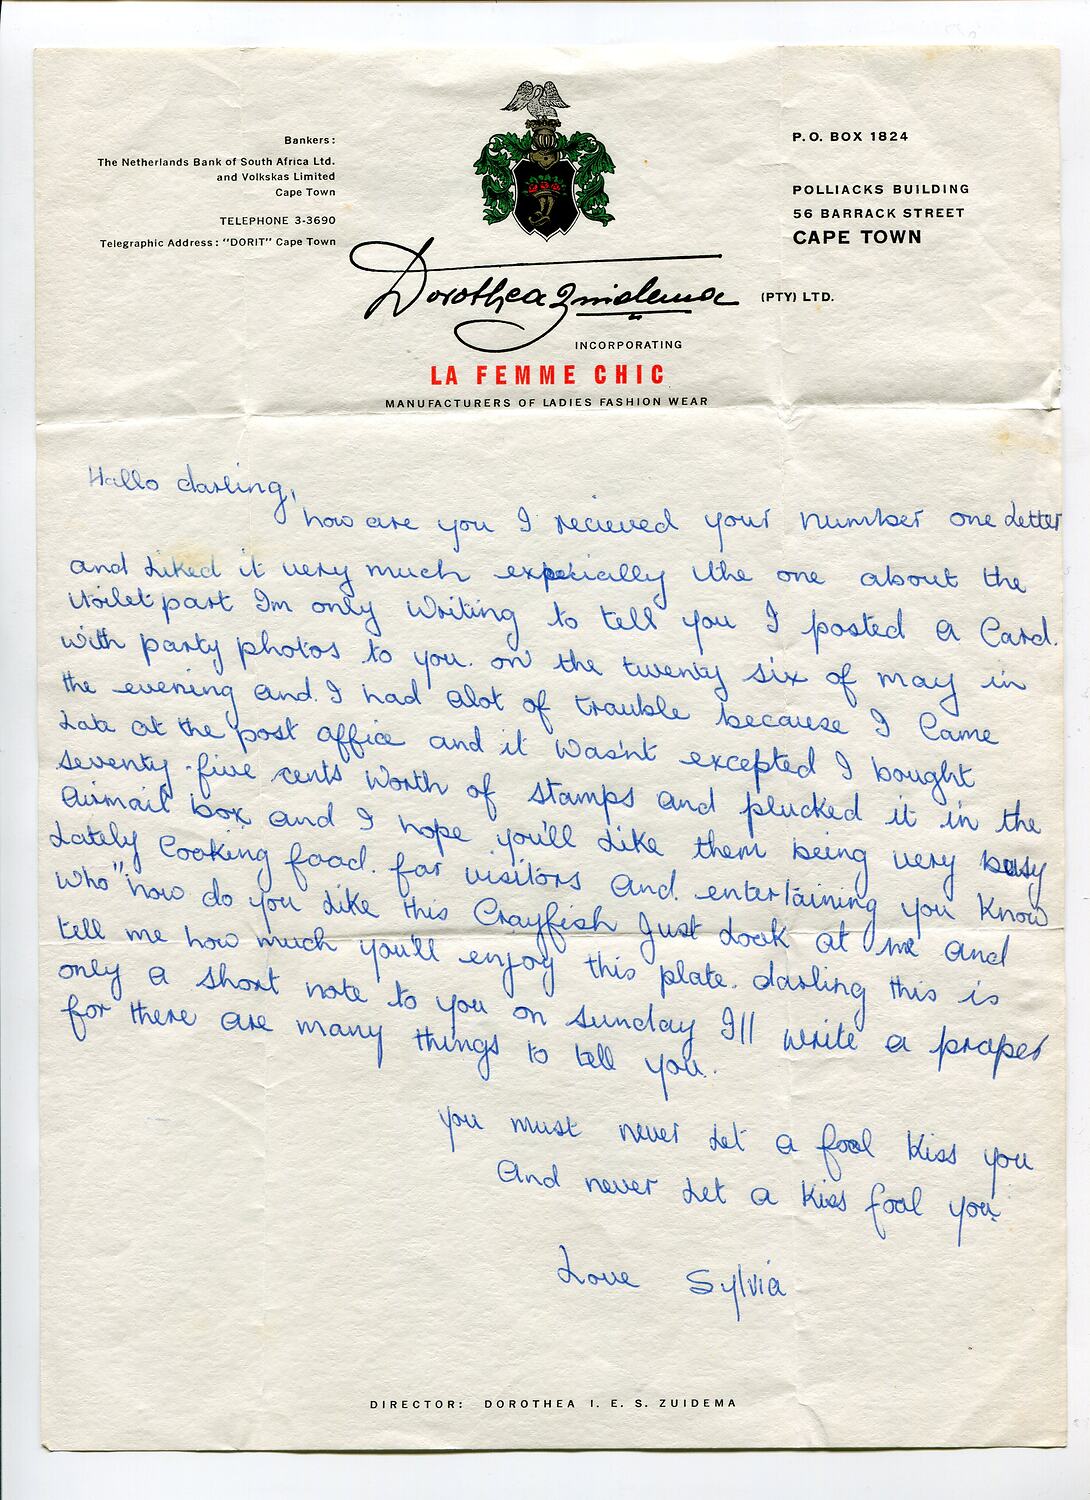 Bankers:
The Netherlands Bank of South Africa Ltd.
and Volkskas Limited
Cape Town
TELEPHONE 3-3690
Telegraphic Address: "DORIT" Cape Town
P.O. BOX 1824
POLLIACKS BUILDING
56 BARRACK STREET
CAPE TOWN
Dorothea Zuidema (PTY) LTD.
INCORPORATING
LA FEMME CHIC
MANUFACTURERS OF LADIES FASHION WEAR
Hallo darling,
how are you I recieved your number one letter
and liked it very much expecially the one about the
toilet part Im only writing to tell you I posted a Card.
with party photos to you. on the twenty six of may in
the evening and. I had alot of trauble because I Came
late at the post affice and it wasn't excepted I bought
seventy-five cents worth of stamps and plucked it in the
Airmail box and I hope you'll like them being very busy
lately Cooking food. for visitors and. entertaining you know
who" how do you like this Crayfish Just look at me and
tell me how much you'll enjoy this plate. darling this is
only a short note to you on sunday I'll write a proper
for there are many things to tell you.
you must never let a fool kiss you
And never let a kiss fool you.
Love Sylvia
DIRECTOR: DOROTHEA I. E. S. ZUIDEMA